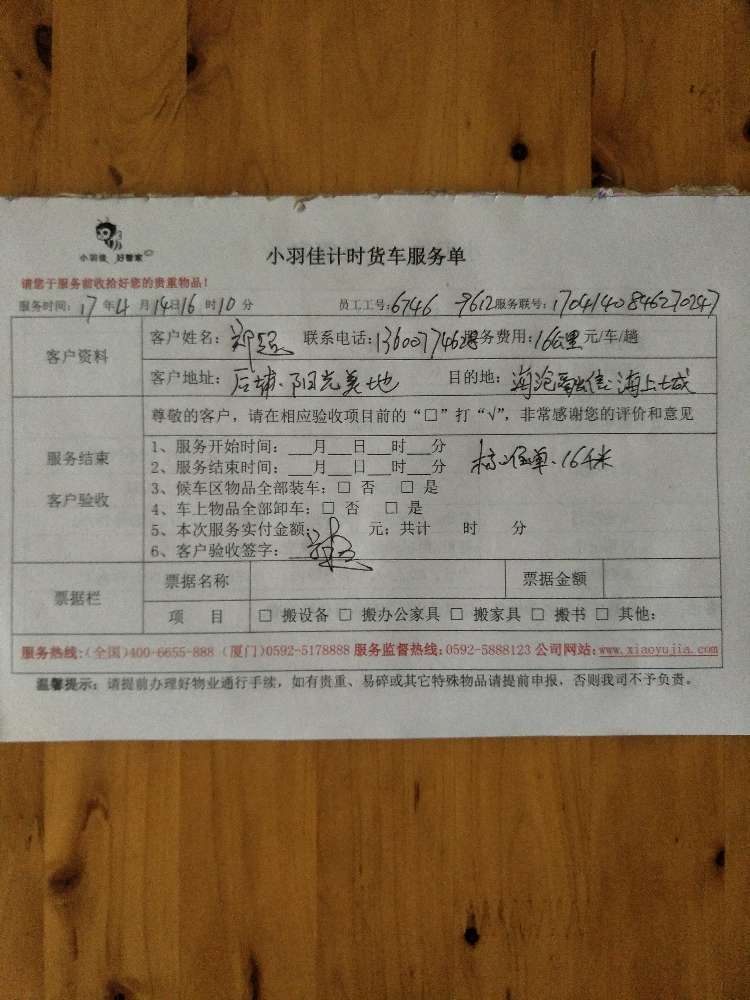 小羽佳 好管家
小羽佳计时货车服务单
请您于服务前收拾好您的贵重物品!
服务时间: 17 年 4 月 14 日 16 时 10 分 员工工号: 6746 9612 服务联号: 1704140846270247
客户资料
客户姓名: 郑 联系电话: 服务费用: 16公里 元/车/趟
客户地址: 后埔、阳光美地 目的地: 海沧 海上大城
服务结束
客户验收
尊敬的客户,请在相应验收项目前的“□”打“√”,非常感谢您的评价和意见
1、服务开始时间:___月___日___时___分
2、服务结束时间:___月___日___时___分 单、16千米
3、候车区物品全部装车:□ 否 □ 是
4、车上物品全部卸车:□ 否 □ 是
5、本次服务实付金额: 元;共计 时 分
6、客户验收签字:
票据栏
票据名称 票据金额
项 目 □ 搬设备 □ 搬办公家具 □ 搬家具 □ 搬书 □ 其他:
服务热线:(全国)400-6655-888 (厦门)0592-5178888 服务监督热线:0592-5888123 公司网站:www.xiaoyujia.com
温馨提示:请提前办理好物业通行手续,如有贵重、易碎或其它特殊物品请提前申报,否则我司不予负责。